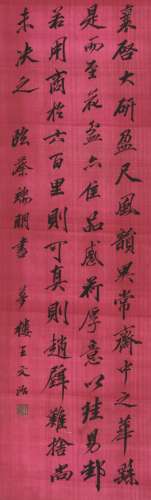 襄啓大研盈尺風韻異常齋中之華繇
是而至花盎亦佳品感荷厚意以珪易邽
若用商於六百里則可真則趙璧難捨尚
未決之 臨蔡端明書 夢樓王文治